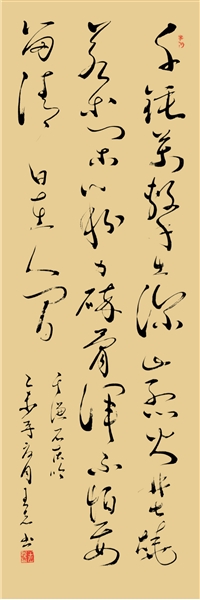 千錘萬擊出深山烈火焚燒
若等閒粉身碎骨渾不怕要
留清白在人間
于謙石灰吟
乙未年夏月王書